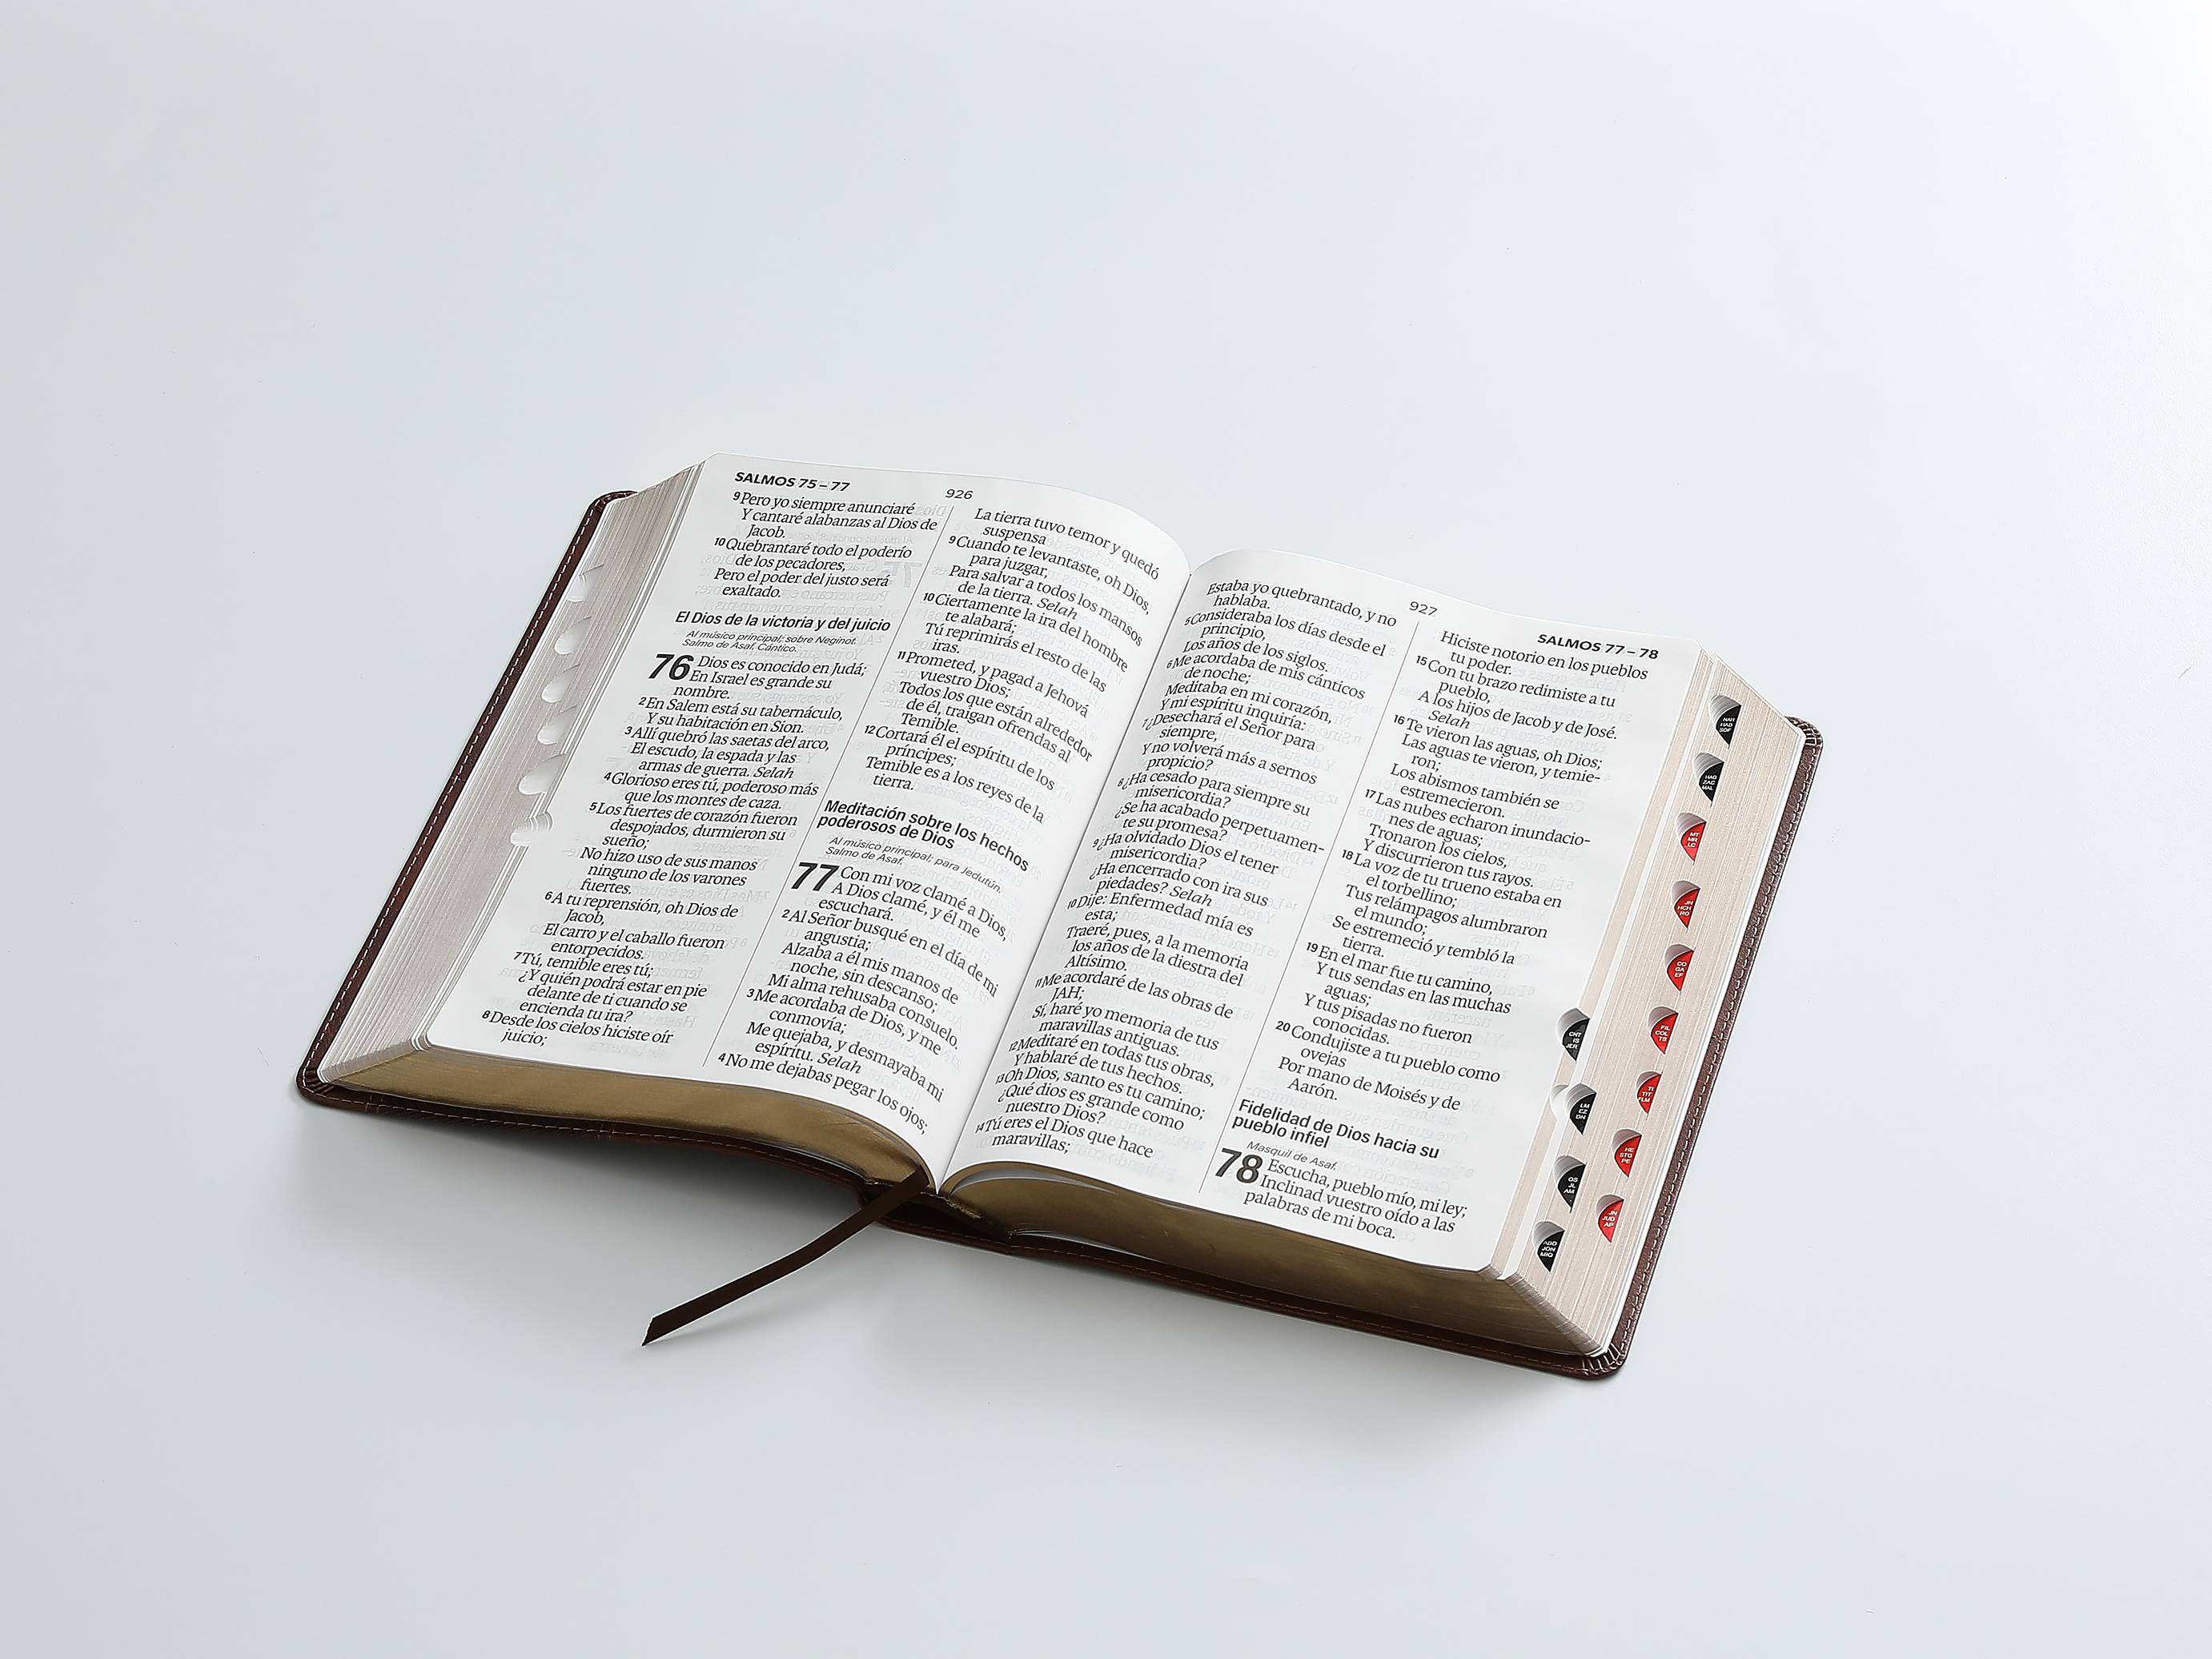 SALMOS 75 – 77
926
9 Pero yo siempre anunciaré
Y cantaré alabanzas al Dios de
Jacob.
10 Quebrantaré todo el poderío
de los pecadores,
Pero el poder del justo será
exaltado.
El Dios de la victoria y del juicio
Al músico principal; sobre Neginot.
Salmo de Asaf. Cántico.
76 Dios es conocido en Judá;
En Israel es grande su
nombre.
2 En Salem está su tabernáculo,
Y su habitación en Sion.
3 Allí quebró las saetas del arco,
El escudo, la espada y las
armas de guerra. Selah
4 Glorioso eres tú, poderoso más
que los montes de caza.
5 Los fuertes de corazón fueron
despojados, durmieron su
sueño;
No hizo uso de sus manos
ninguno de los varones
fuertes.
6 A tu reprensión, oh Dios de
Jacob,
El carro y el caballo fueron
entorpecidos.
7 Tú, temible eres tú;
¿Y quién podrá estar en pie
delante de ti cuando se
encienda tu ira?
8 Desde los cielos hiciste oír
juicio;
La tierra tuvo temor y quedó
suspensa
9 Cuando te levantaste, oh Dios,
para juzgar,
Para salvar a todos los mansos
de la tierra. Selah
10 Ciertamente la ira del hombre
te alabará;
Tú reprimirás el resto de las
iras.
11 Prometed, y pagad a Jehová
vuestro Dios;
Todos los que están alrededor
de él, traigan ofrendas al
Temible.
12 Cortará él el espíritu de los
príncipes;
Temible es a los reyes de la
tierra.
Meditación sobre los hechos
poderosos de Dios
Al músico principal; para Jedutún.
Salmo de Asaf.
77 Con mi voz clamé a Dios,
A Dios clamé, y él me
escuchará.
2 Al Señor busqué en el día de mi
angustia;
Alzaba a él mis manos de
noche, sin descanso;
Mi alma rehusaba consuelo.
3 Me acordaba de Dios, y me
conmovía;
Me quejaba, y desmayaba mi
espíritu. Selah
4 No me dejabas pegar los ojos;
927
SALMOS 77 – 78
Estaba yo quebrantado, y no
hablaba.
5 Consideraba los días desde el
principio,
Los años de los siglos.
6 Me acordaba de mis cánticos
de noche;
Meditaba en mi corazón,
Y mi espíritu inquiría:
7 ¿Desechará el Señor para
siempre,
Y no volverá más a sernos
propicio?
8 ¿Ha cesado para siempre su
misericordia?
¿Se ha acabado perpetuamen-
te su promesa?
9 ¿Ha olvidado Dios el tener
misericordia?
¿Ha encerrado con ira sus
piedades? Selah
10 Dije: Enfermedad mía es
esta;
Traeré, pues, a la memoria
los años de la diestra del
Altísimo.
11 Me acordaré de las obras de
JAH;
Sí, haré yo memoria de tus
maravillas antiguas.
12 Meditaré en todas tus obras,
Y hablaré de tus hechos.
13 Oh Dios, santo es tu camino;
¿Qué dios es grande como
nuestro Dios?
14 Tú eres el Dios que hace
maravillas;
Hiciste notorio en los pueblos
tu poder.
15 Con tu brazo redimiste a tu
pueblo,
A los hijos de Jacob y de José.
Selah
16 Te vieron las aguas, oh Dios;
Las aguas te vieron, y temie-
ron;
Los abismos también se
estremecieron.
17 Las nubes echaron inundacio-
nes de aguas;
Tronaron los cielos,
Y discurrieron tus rayos.
18 La voz de tu trueno estaba en
el torbellino;
Tus relámpagos alumbraron
el mundo;
Se estremeció y tembló la
tierra.
19 En el mar fue tu camino,
Y tus sendas en las muchas
aguas;
Y tus pisadas no fueron
conocidas.
20 Condujiste a tu pueblo como
ovejas
Por mano de Moisés y de
Aarón.
Fidelidad de Dios hacia su
pueblo infiel
Masquil de Asaf.
78 Escucha, pueblo mío, mi ley;
Inclinad vuestro oído a las
palabras de mi boca.